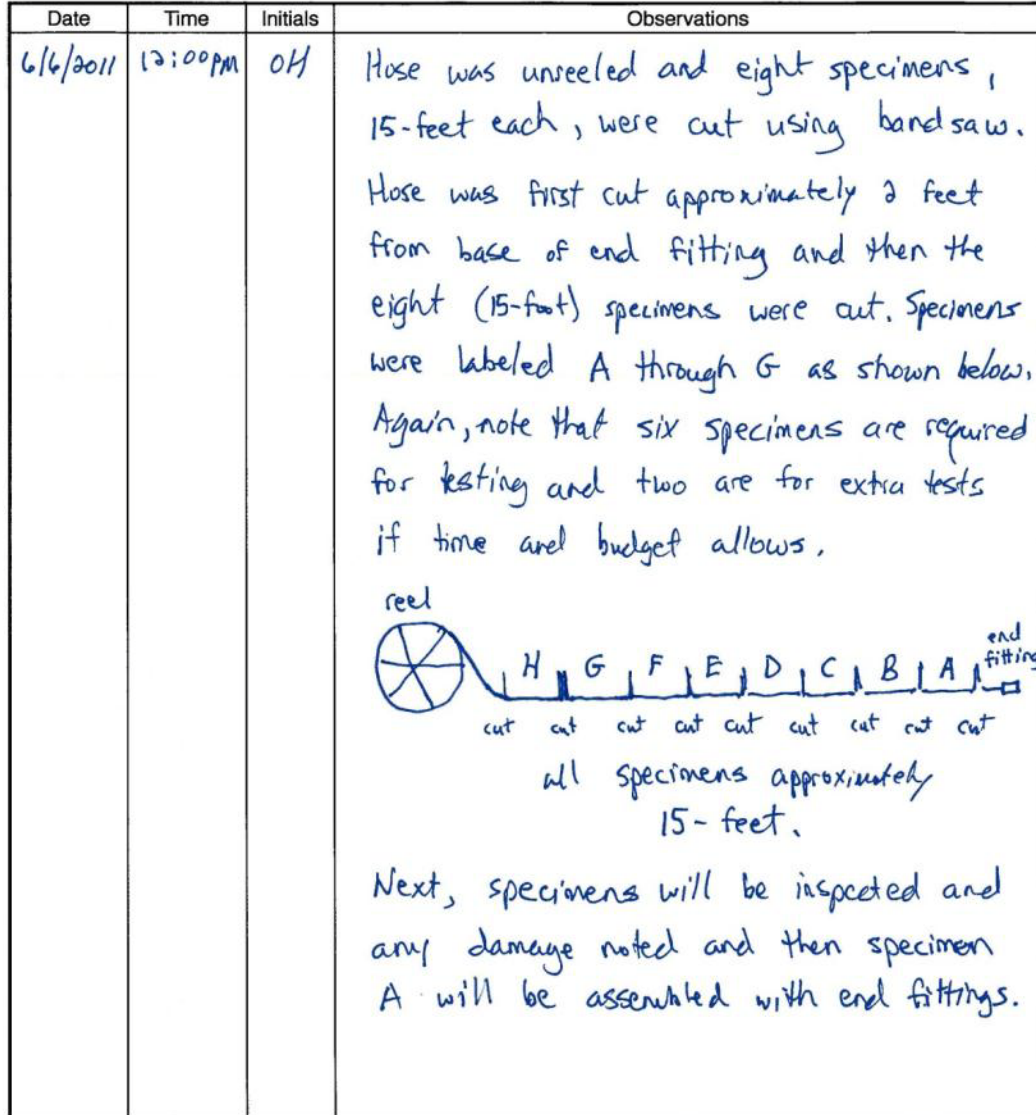 Date Time Initials Observations
6/6/2011 12:00PM OH Hose was unreeled and eight specimens,
15-feet each, were cut using bandsaw.
Hose was first cut approximately 2 feet
from base of end fitting and then the
eight (15-foot) specimens were cut. Specimens
were labeled A through G as shown below.
Again, note that six specimens are required
for testing and two are for extra tests
if time and budget allows.
reel
end
H G F E D C B A fitting
cut cut cut cut cut cut cut cut cut
all specimens approximately
15-feet.
Next, specimens will be inspected and
any damage noted and then specimen
A will be assembled with end fittings.